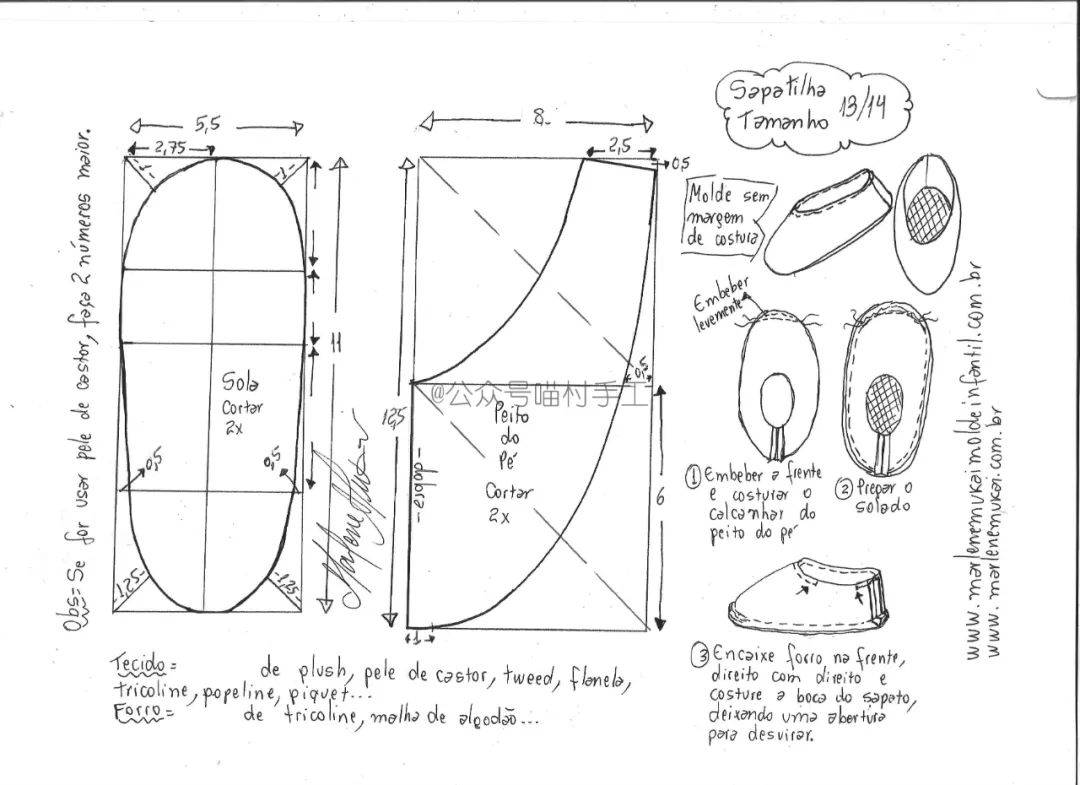 Sapatilha
Tamanho 13/14
5,5
2,75
1
1
8
2,5
0,5
Molde sem
margem
de costura
Obs= Se for usar pele de castor, faça 2 números maior.
11
Sola
Cortar
2x
0,5
0,5
1,25
1,25
12,5
0,5
@公众号喵村手工
Peito
do
Pé
Cortar
2x
-dobra-
6
1
Marlene Mukai
Embeber
levemente
① Embeber a frente
e costurar o
calcanhar do
peito do pé
② Prepar o
solado
③ Encaixe forro na frente,
direito com direito e
costure a boca do sapato,
deixando uma abertura
para desvirar.
Tecido= de plush, pele de castor, tweed, flanela,
tricoline, popeline, piquet...
Forro= de tricoline, malha de algodão...
www.marlenemukaimoldeinfantil.com.br
www.marlenemukai.com.br